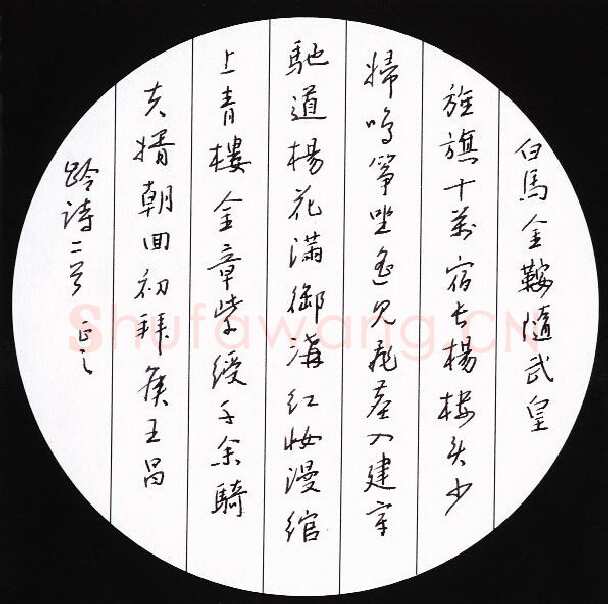 白馬金鞍隨武皇
旌旗十萬宿长楊楼头少
婦鸣筝坐遥见飛塵入建章
馳道楊花滿御溝红妝漫綰
上青樓金章紫綬千余騎
夫婿朝回初拜侯王昌
龄诗二首 正之
Shufawang.CN